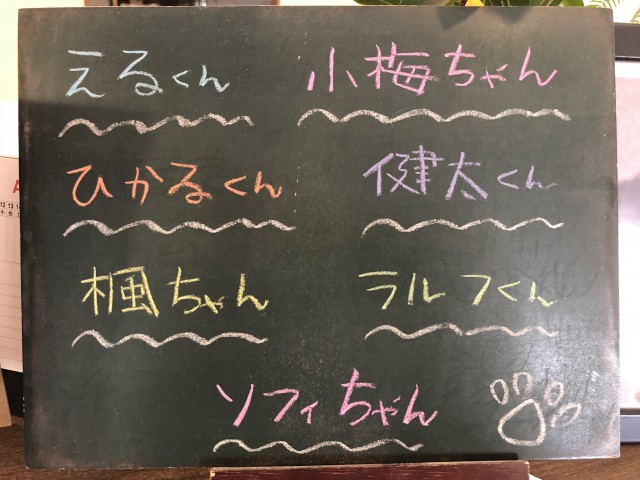 えるくん 小梅ちゃん
ひかるくん 健太くん
楓ちゃん ラルフくん
ソフィちゃん
12 13 14
木 金